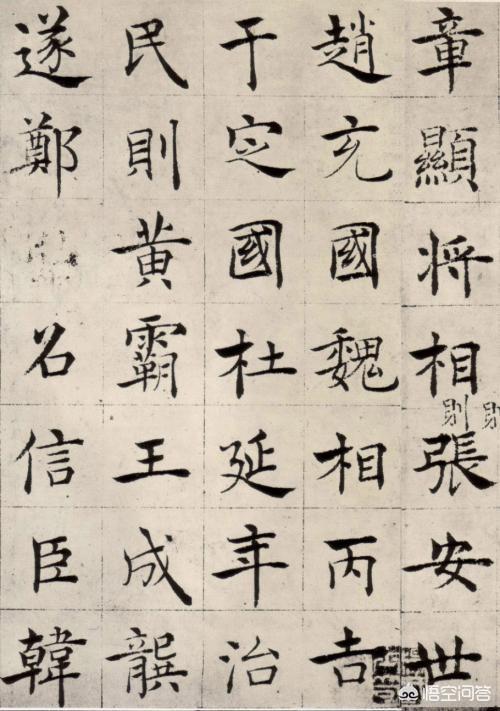 章顯將相張安世
趙充國魏相丙吉
于定國杜延年治
民則黃霸王成龔
遂鄭召信臣韓
悟空问答